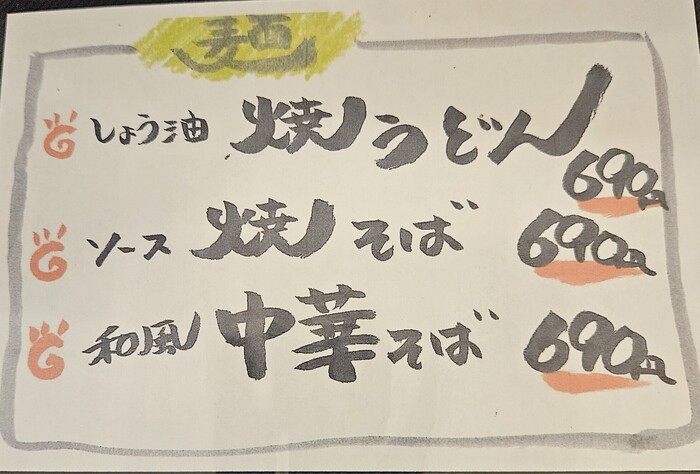 麺
しょう油 焼うどん 690円
ソース 焼そば 690円
和風 中華そば 690円